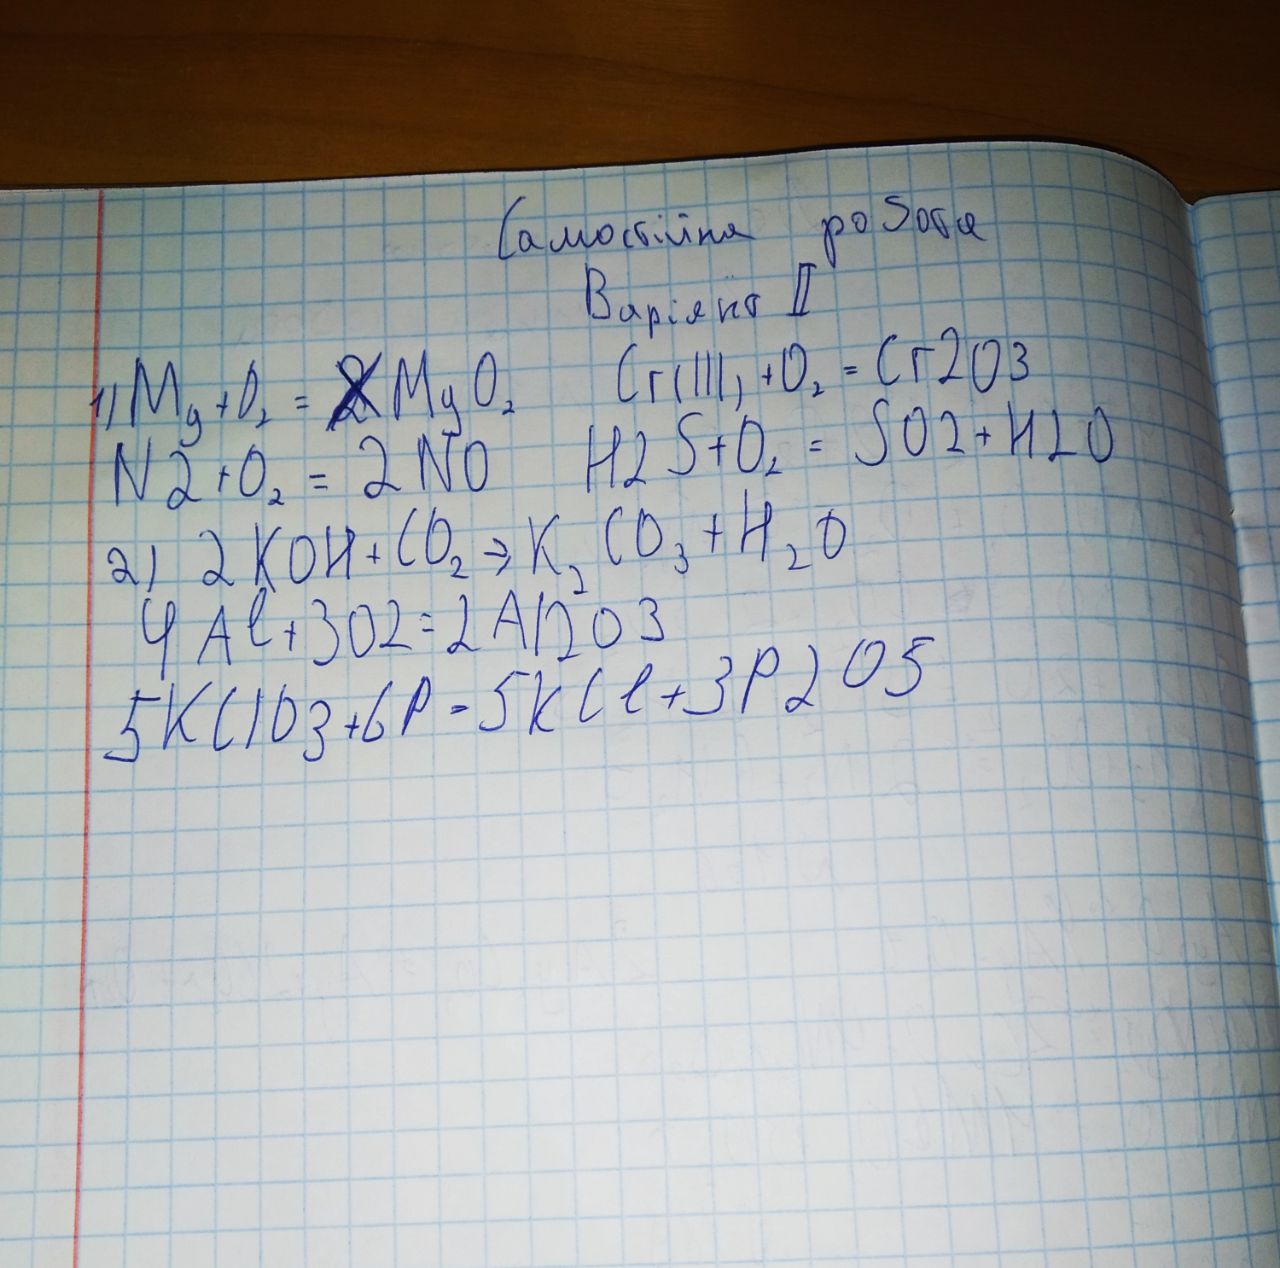 Самостійна робота
Варіянт II
1) Mg + O₂ = MgO₂ Cr(III) + O₂ = Cr2O3
N2 + O₂ = 2NO H2S + O₂ = SO2 + H2O
2) 2KOH + CO₂ → K₂CO₃ + H₂O
4Al + 3O2 = 2Al2O3
5KClO3 + 6P = 5KCl + 3P2O5